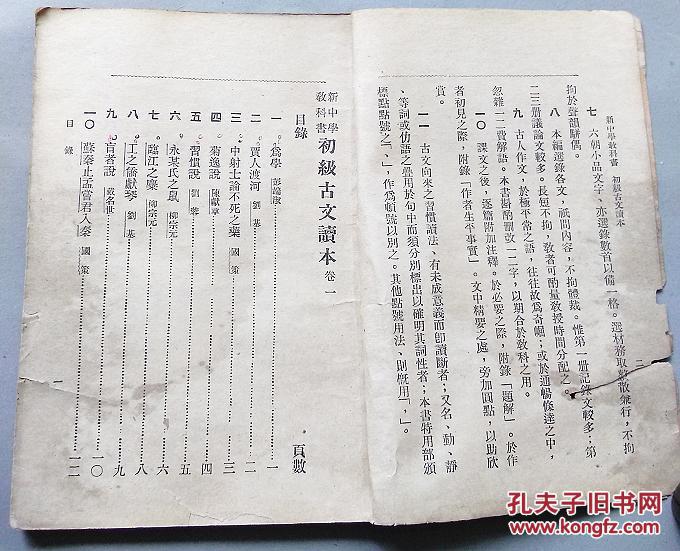 新中學教科書 初級古文讀本
二
七 六朝小品文字、亦選錄數首以備一格。選材務取駢散兼行，不拘
拘於聲韻駢偶。
八 本編選錄各文，祇問內容，不拘體裁。惟第一册記錄文較多；第
二三册議論文較多。長短不拘，敎者可酌量敎授時間分配之。
九 古人作文，於極平常之語，往往故爲奇崛；或於通暢條達之中，
忽雜一二費解語。本書斟酌刪改一二字，以期合於敎科之用。
一〇 課文之後，逐篇附加注釋。於必要之際，附錄「題解」。於作
者初見之際，附錄「作者生平事實」。文中精要之處，旁加圓點，以助欣
賞。
一一 古文向來之習慣讀法、有未成意義而卽讀斷者；又名、動、靜
、等詞或仂語之疊用於句中而須分別標出以確明其詞性者；本書特用部頒
標點點號之「、」，作爲頓號以別之。其他點號用法、則槪用「，」。
新中學
敎科書 初級古文讀本 卷一
目錄 頁數
一 爲學 彭端淑 一
二 賈人渡河 劉基 二
三 中射士論不死之藥 國策 三
四 菊逸說 陳獻章 四
五 習慣說 劉蓉 五
六 永某氏之鼠 柳宗元 六
七 臨江之麋 柳宗元 七
八 工之僑獻琴 劉基 八
九 盲者說 戴名世 九
一〇 蘇秦止孟嘗君入秦 國策 一〇
目錄 一
一二
孔夫子旧书网
www.kongfz.com